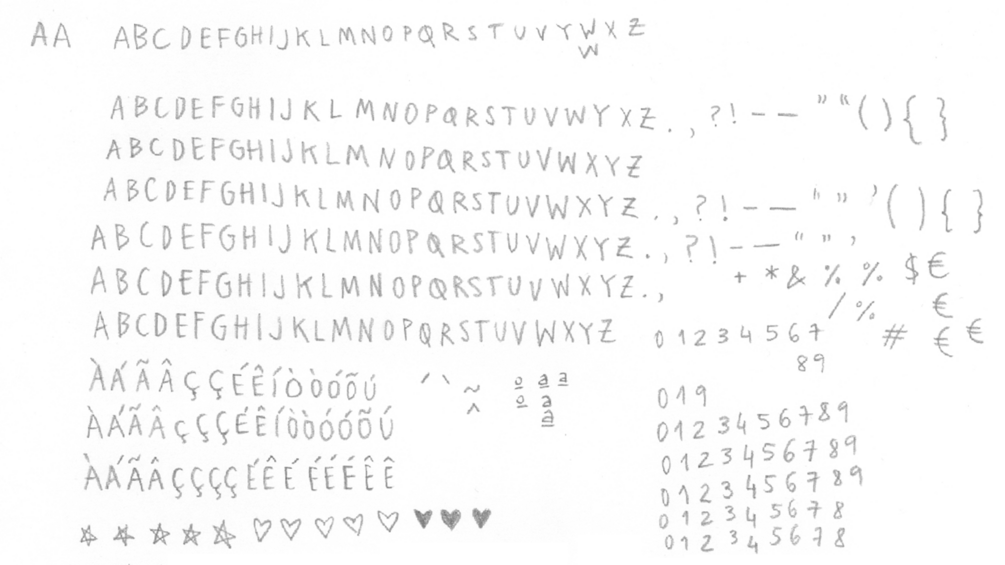 AA ABCDEFGHIJKLMNOPQRSTUVYWXZ
W
ABCDEFGHIJKLMNOPQRSTUVWYXZ.,?!-—”“(){}
ABCDEFGHIJKLMNOPQRSTUVWXYZ
ABCDEFGHIJKLMNOPQRSTUVWXYZ.,?!-—“”’(){}
ABCDEFGHIJKLMNOPQRSTUVWXYZ.,?!-—“”’
+*&%%$€
ABCDEFGHIJKLMNOPQRSTUVWXYZ.,
/%€
ABCDEFGHIJKLMNOPQRSTUVWXYZ 01234567 #€€
89
ÀÁÃÂÇÇÉÊÍÒÒÓÕÚ ´`~^ ºªª
ºªª
019
ÀÁÃÂÇÇÇÉÊÍÒÒÓÓÕÚ
0123456789
0123456789
ÀÁÃÂÇÇÇÇÉÊÉÉÉÉÊÊ
0123456789
012345678
☆☆☆☆☆♡♡♡♡♡♥♥♥
012345678